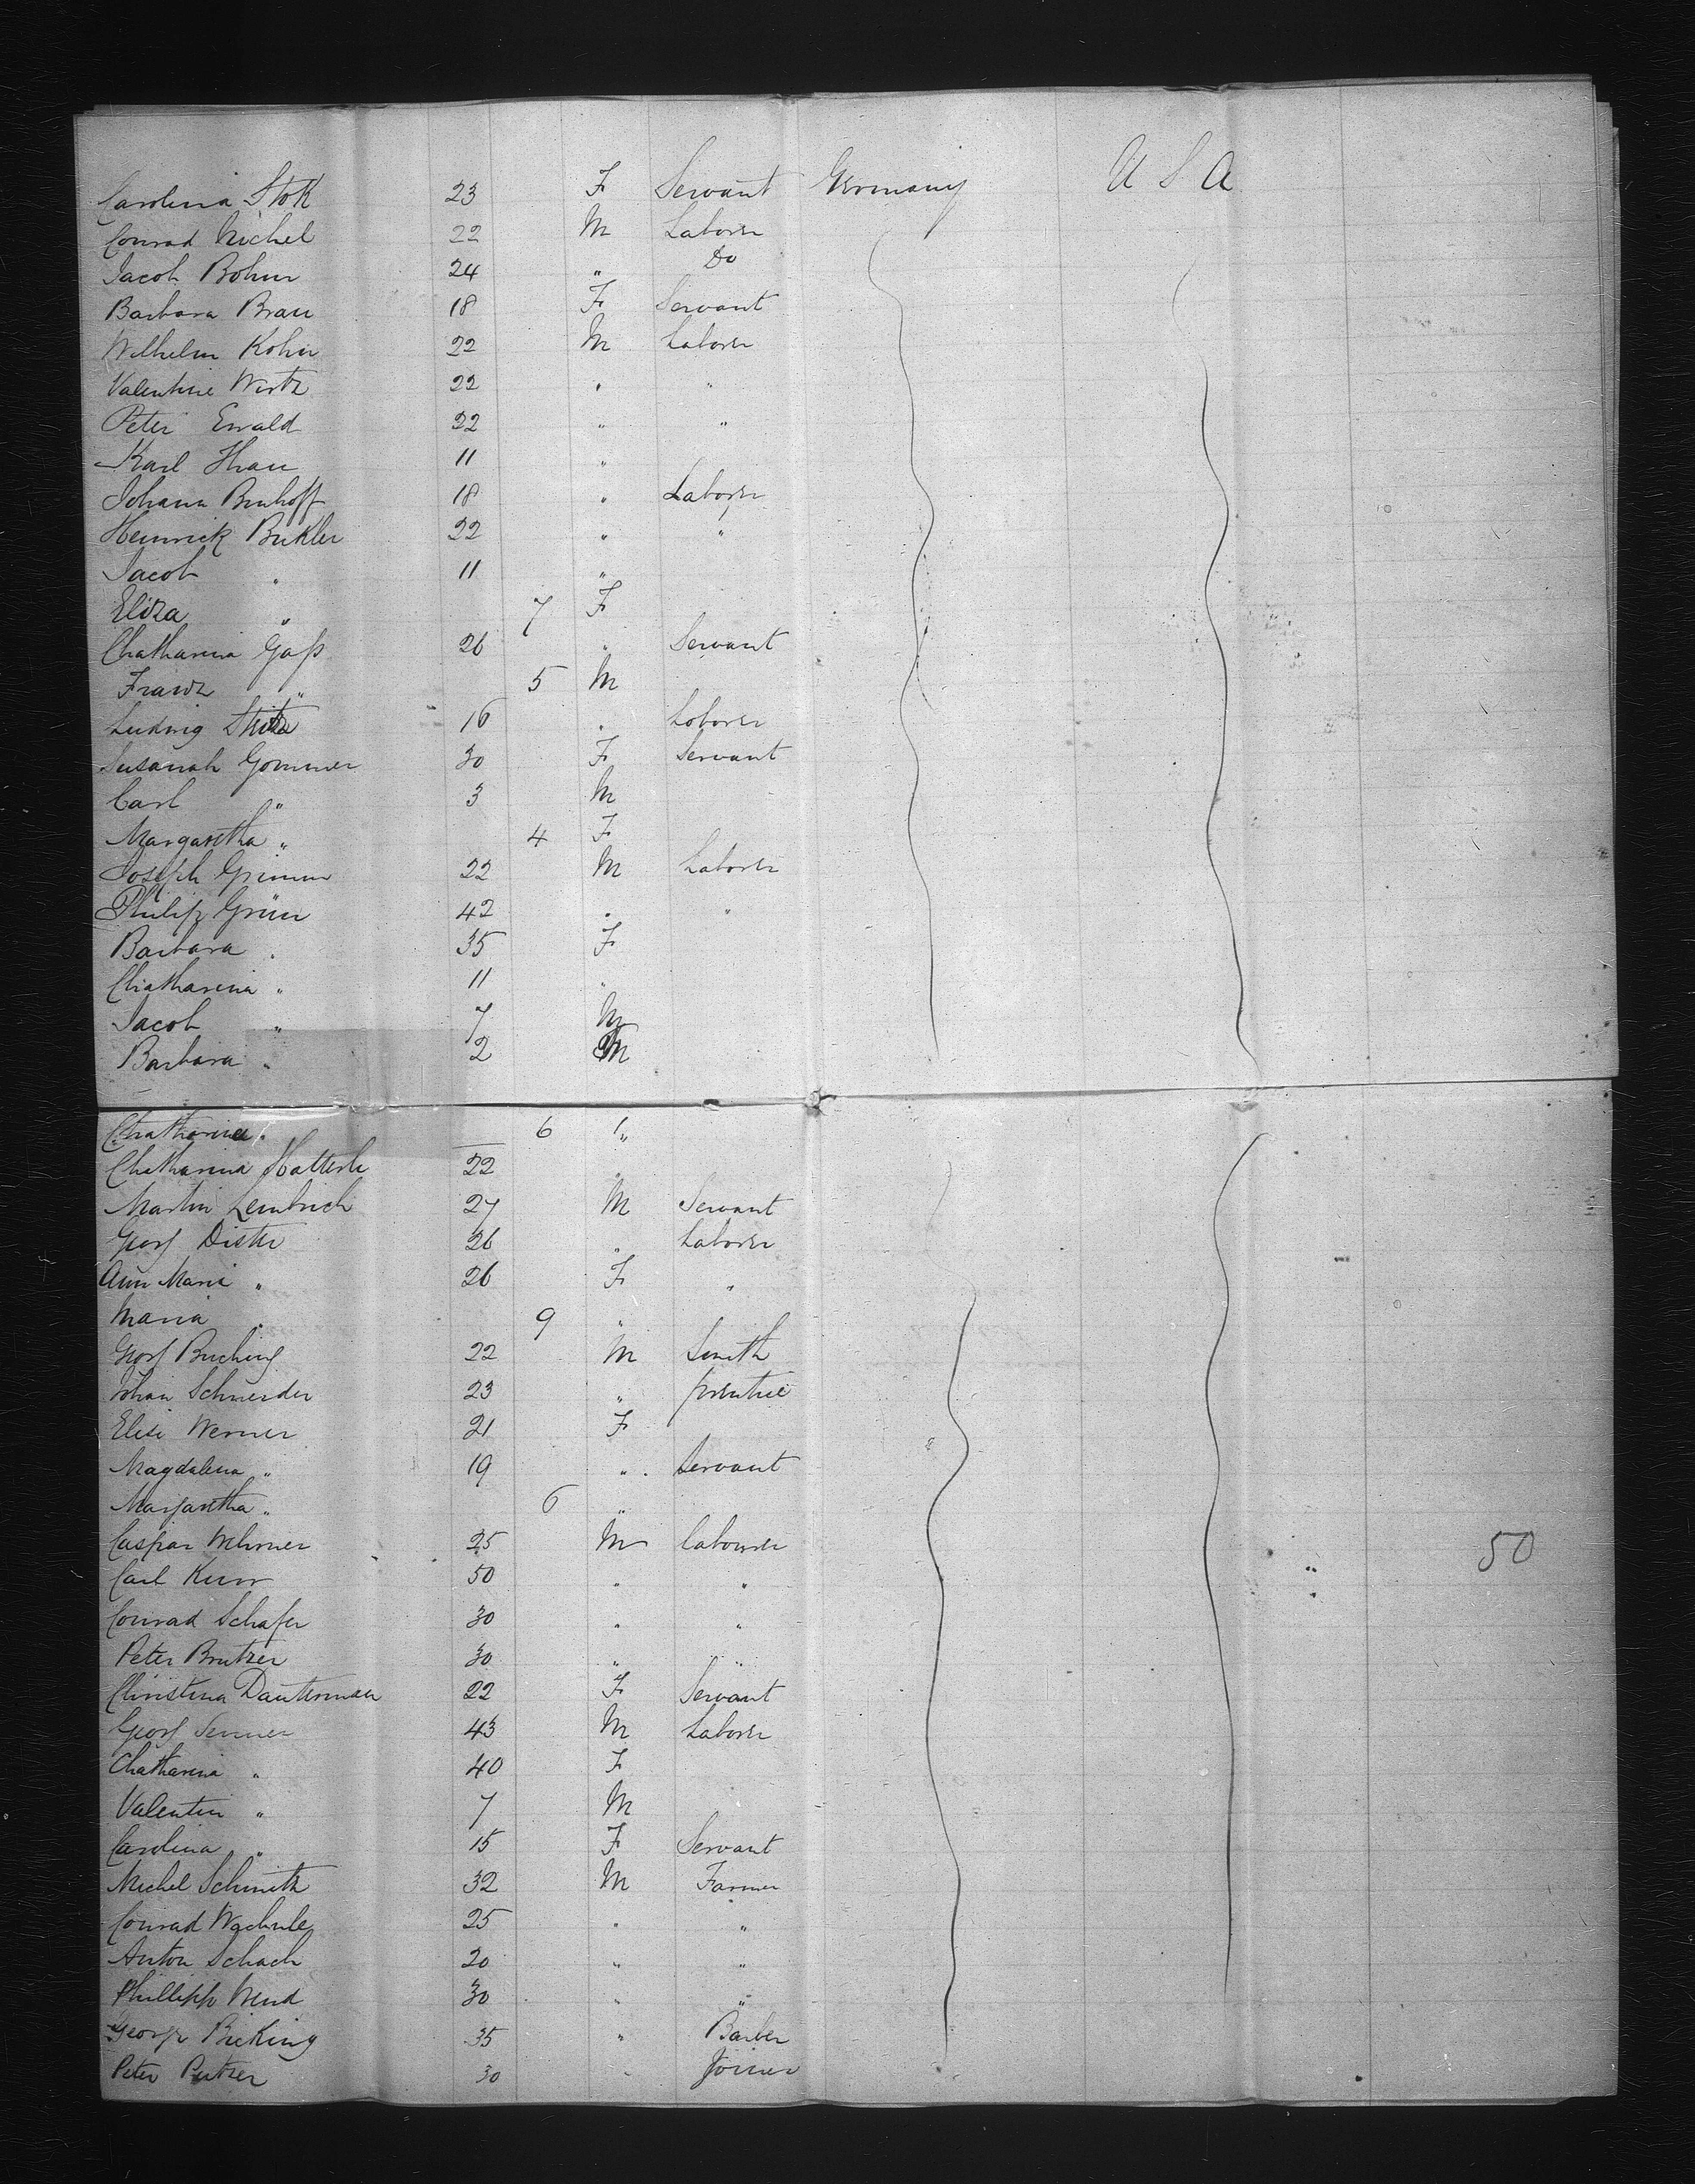 Carolina Stok 23 F Servant Germany U S A
Conrad Michel 22 M Laborer
Jacob Bohm 24 " Do
Barbara Brau 18 F Servant
Wilhelm Kohn 22 M Laborer
Valentine Wertz 22 " "
Peter Ewald 22 " "
Karl Hau 11 "
Johann Bruhoff 18 " Laborer
Heinrick Bukler 22 " "
Jacob " 11 "
Eliza " 7 F
Chatharina Gaß 26 " Servant
Franz " 5 M
Ludwig 16 " Laborer
Susanah Gommer 30 F Servant
Carl " 3 M
Margaretha " 4 F
Joseph Grimm 22 M Laborer
Philip Grün 42 " "
Barbara " 35 F
Chatharina " 11 "
Jacob " 7 M
Barbara " 2 M
Chatharina " 6 "
Chatharina 22 "
Martin Lembrich 27 M Servant
Georg Dister 26 " Laborer
Ann Maria " 26 F "
Maria " 9 "
Georg Buching 22 M Smith
Johan Schneider 23 " prentice
Elise Werner 21 F
Magdalena " 19 " Servant
Margaretha " 6 "
Caspar Wehrner 25 M labourer 50
Carl Kurr 50 " "
Conrad Schafer 30 " "
Peter Brutzer 30 " "
Christina Dauterman 22 F Servant
Georg Senner 43 M Laborer
Chatharina " 40 F
Valentin " 7 M
Carolina " 15 F Servant
Michel Schmitz 32 M Farmer
Conrad 25 " "
Anton Schach 20 " "
Phillipp Wend 30 " "
George Bicking 35 " Barber
Peter 30 " Joiner